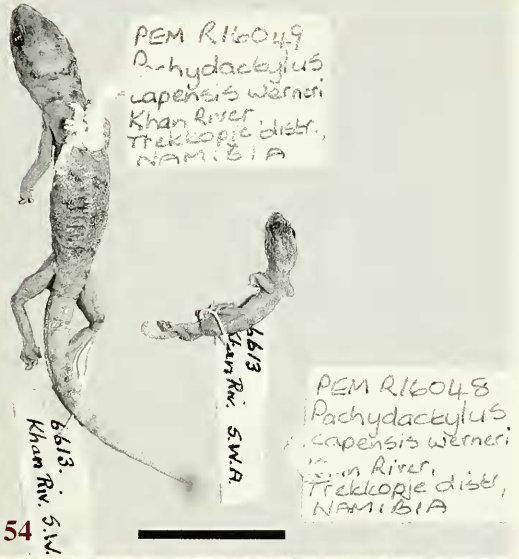 PEM R16049
capensis werneri
Khan River,
Trekkopje distr.,
NAMIBIA
6613
Khan Riv. S.W.A
PEM R16048
Pachydactylus
capensis werneri
River,
Trekkopje distr,
NAMIBIA
6613.
Khan Riv. S.W.
54